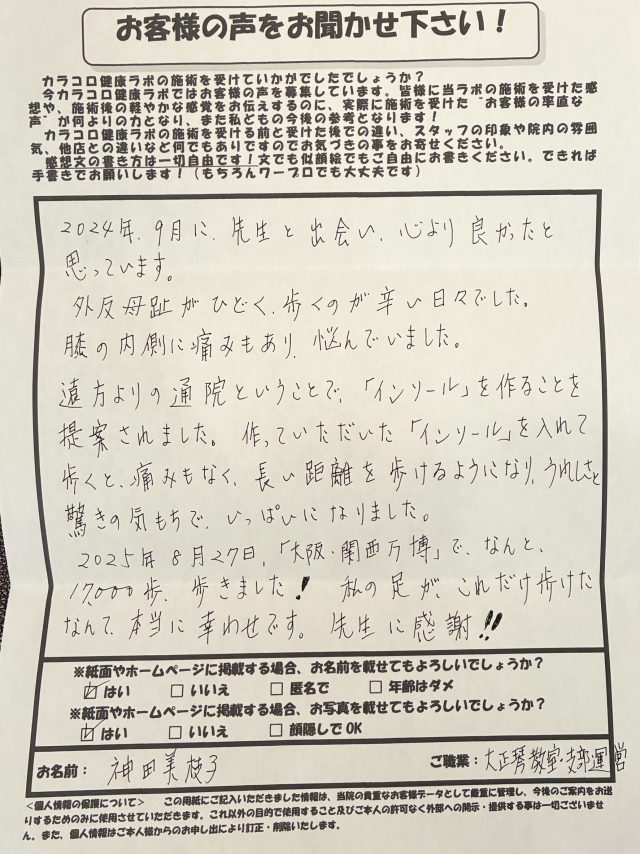 お客様の声をお聞かせ下さい！
カラコロ健康ラボの施術を受けていかがでしたでしょうか？
今カラコロ健康ラボではお客様の声を募集しています。皆様に当ラボの施術を受けた感
想や、施術後の軽やかな感覚をお伝えするのに、実際に施術を受けた"お客様の率直な
声"が何よりの力となり、また私どもの今後の参考となります！
カラコロ健康ラボの施術を受ける前と受けた後での違い、スタッフの印象や院内の雰囲
気、他店との違いなど何でもありですのでお気づきの事をお寄せください。
感想文の書き方は一切自由です！文でも似顔絵でもご自由にお書きください。できれば
手書きでお願いします！（もちろんワープロでも大丈夫です）
2024年、9月に、先生と出会い、心より良かったと
思っています。
外反母趾がひどく、歩くのが辛い日々でした。
膝の内側に痛みもあり、悩んでいました。
遠方よりの通院ということで、「インソール」を作ることを
提案されました。作っていただいた「インソール」を入れて
歩くと、痛みもなく、長い距離を歩けるようになり、うれしさと
驚きの気もちで、いっぱいになりました。
2025年8月27日、「大阪・関西万博」で、なんと、
17,000歩、歩きました！私の足が、これだけ歩けた
なんて、本当に幸わせです。先生に感謝!!
※紙面やホームページに掲載する場合、お名前を載せてもよろしいでしょうか？
☑はい □いいえ □匿名で □年齢はダメ
※紙面やホームページに掲載する場合、お写真を載せてもよろしいでしょうか？
☑はい □いいえ □顔隠しでOK
お名前： 神田美枝子 ご職業：大正琴教室・支部運営
＜個人情報の保護について＞ この用紙にご記入いただきました情報は、当院の貴重なお客様データとして厳重に管理し、今後のご案内をお送
りするためのみに使用させていただきます。これ以外の目的で使用すること及びご本人の許可なく外部への開示・提供する事は一切ございませ
ん。また、個人情報はご本人様からのお申し出により訂正・削除いたします。